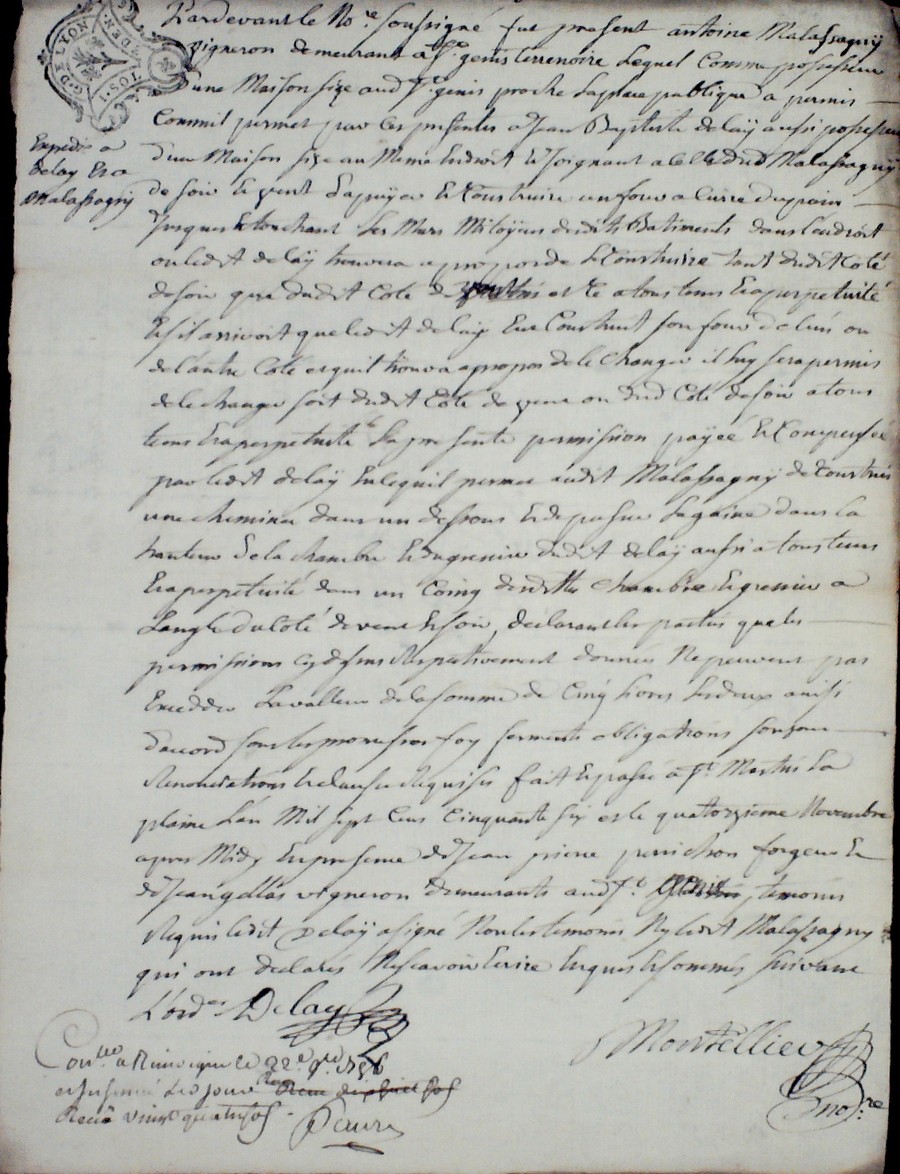 G. DE LYON
DEN.
10S.1
Pardevant le No.re soussigné fut present antoine Malassagny
vigneron demeurant a St. genis terrenoire Lequel Comme possesseur
d'une Maison size aud St. genis proche La place publique a permis
Comm il permet par les presentes a Jean Baptiste delaÿ aussi possesseur
d'une Maison size au Meme Endroit Et Joignant a Celle dud Malassagny
de soir Et vent d'apuÿer Et Construire un four a Cuire du pain
Jusques Et touchant Les Murs Mitoÿens desdits Batiments dans l'endroit
ou ledit delaÿ trouvera a propos de Le Construire tant dudit Coté
de soir que dudit Coté de vent et Ce a tous tems Et a perpetuité
Et s'il arrivoit que ledit delaÿ Eut Construit son four de l'un ou
de l'autre Coté et quil trouva a propos de le Changer il luy sera permis
de le changer soit dudit Coté de vent ou dud Coté de soir a tous
tems Et a perpetuité La presente permission payée Et Compensée
par ledit delaÿ En ce quil permet audit Malassagny de Construire
une cheminée dans un dessous Et de passer La gaine dans La
hauteur de la chambre Et du grenier dudit delaÿ aussi a tous tems
Et a perpetuité dans un Coing desdittes Chambre Et grenier a
Langle du Coté de vent Et soir, declarant les parties que les
permissions cy dessus Respectivement données Ne peuvent pas
Exceder La valleur de la somme de Cinq livres Les deux ainsi
d'accord sous les promesses foy serments obligations
Renonciations Et clauses Requises fait Et passé a St. Martin La
plaine L'an Mil sept Cens Cinquante six et le quatorzieme Novembre
apres Midy En presence de Jean pierre perrichon forgeur Et
de Jean vigneron demeurants aud St. temoins
Requis ledit Delaÿ a signé Non les temoins Ny ledit Malassagny
qui ont declarés Ne scavoir Ecrire Enquis Et sommés suivant
L'ord.ce Delay
Expedié a
Delay Et a
Malassagny
Montellier
no.re
Con.llé a le 22.e 9.bre 1756
et Insinué Led jour
Receu vingt quatre sols